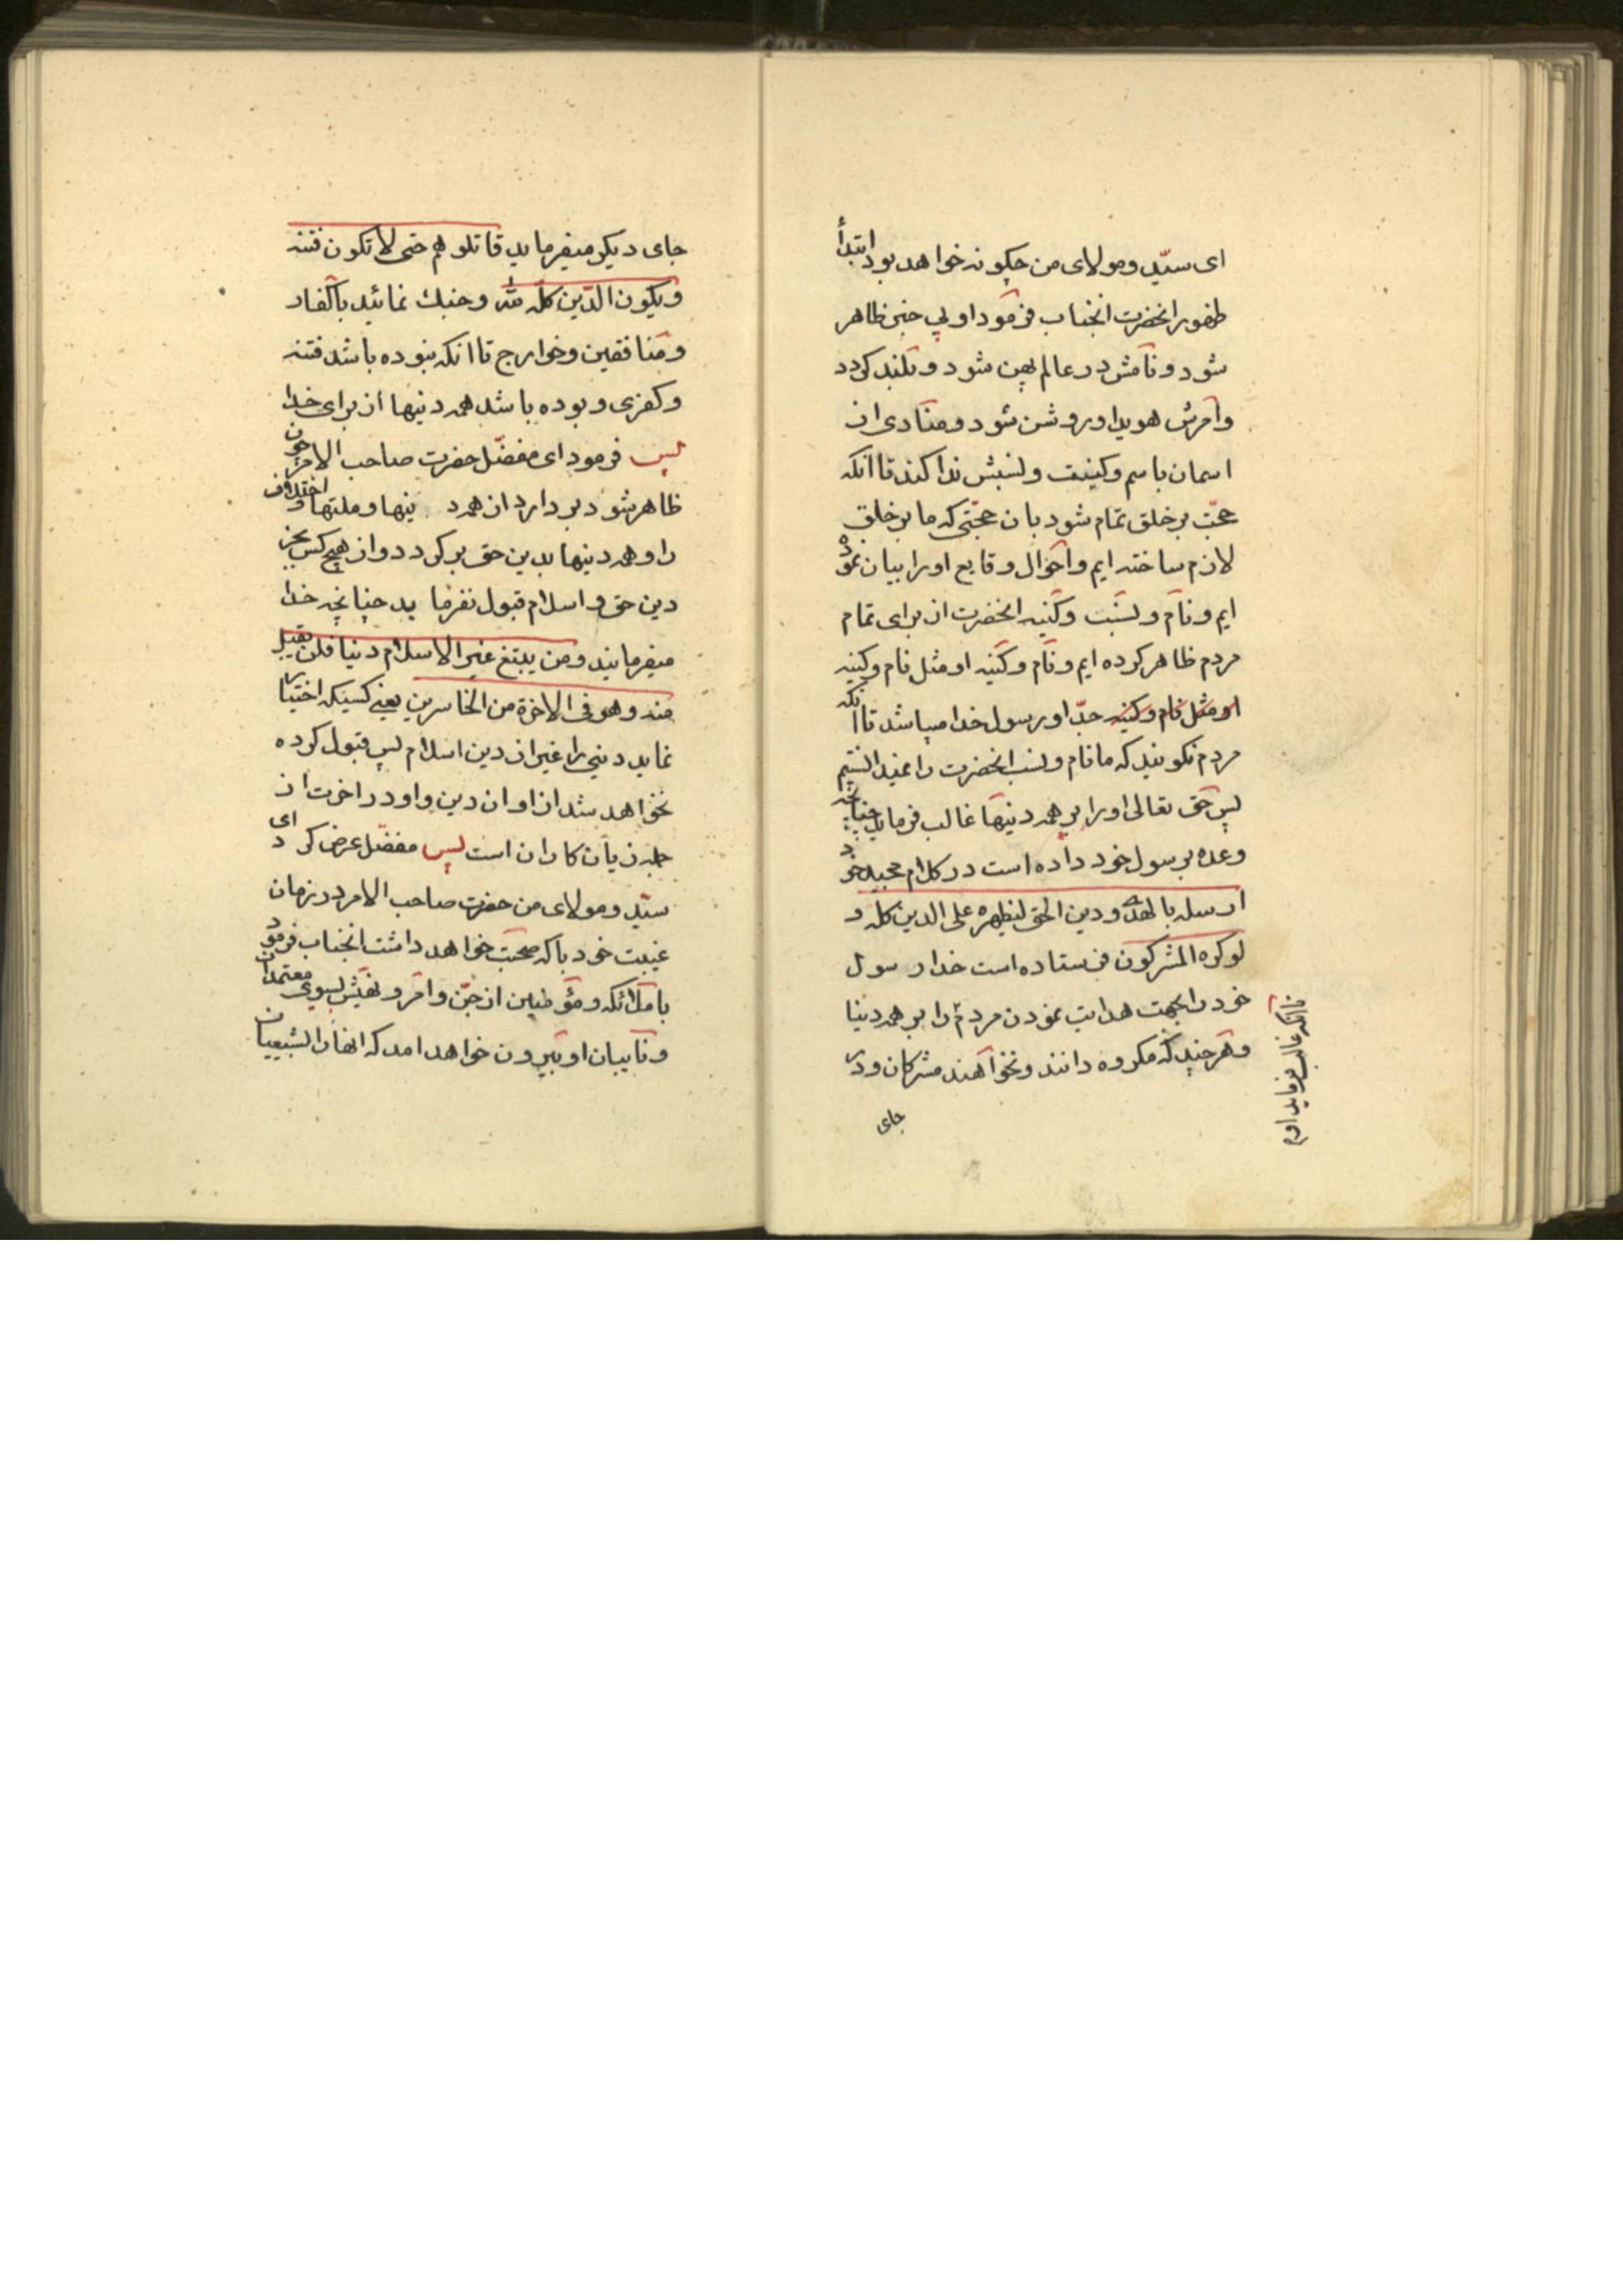 ای سیّد و مولای من چکونه خواهد بود ابتدأ
ظهور انحضرت انجناب فرمود او بی خبر ظاهر
شود و نامش در عالم پهن شود و بلند کردد
و امرش هویدا و روشن شود و منادی از
اسمان باسم و کینت و نسبش ندا کند تا انکه
حجّت بر خلق تمام شود بان حجّتی که ما بر خلق
لازم ساخته ایم و احوال و قایع او را بیان نموده
ایم و نام و نسبت و کنیه انحضرت از برای تمام
مردم ظاهر کرده ایم و نام و کنیه او مثل نام و کنیه
او مثل نام و کنیه جدّ او رسول خدا میباشد تا انکه
مردم نکویند که ما نام و نسب انحضرت را نمیدانستیم
پس حق تعالی او را بر همه دینها غالب فرماید چنانچه
وعده برسول خود داده است در کلام مجید خود
ارسله بالهدی و دین الحق لیظهره علی الدین کله و
لو کره المشرکون فرستاده است خدا رسول
خود را بجهت هدایت نمودن مردم را بر همه دینا
و هر چند که مکروه دانند و نخواهند مشرکان و در
تا انکه غالب فرماید او را
جای
جای دیکر میفرماید قاتلوهم حتی لا تکون فتنه
و یکون الدّین کلّه للّه و جنك نمائید با کفار
و منافقین و خوارج تا انکه نبوده باشد فتنه
و کفری و بوده باشد همه دینها از برای خدا
پس فرمود ای مفضّل حضرت صاحب الامر چون
ظاهر شود بردارد از همه دینها و ملتها اختلاف
را و همه دینها بدین حق بر کردد و از هیچ کس بجز
دین حق و اسلام قبول نفرماید چنانچه خدا
میفرمایند و من یبتغ غیر الاسلام دینا فلن یقبل
منه و هو فی الاخرة من الخاسرین یعنی کسیکه اختیار
نماید دینی را غیر از دین اسلام پس قبول کرده
نخواهد شد از او ان دین و او در اخرت از
جمله زیان کاران است پس مفضّل عرض کرد ای
سیّد و مولای من حضرت صاحب الامر در زمان
غیبت خود با که صحبت خواهد داشت انجناب فرمود
با ملائکه و مؤمنین از جنّ و امر و نهیش بسوی معتمدان
و نایبان او بیرون خواهد امد که انها را بشیعیان